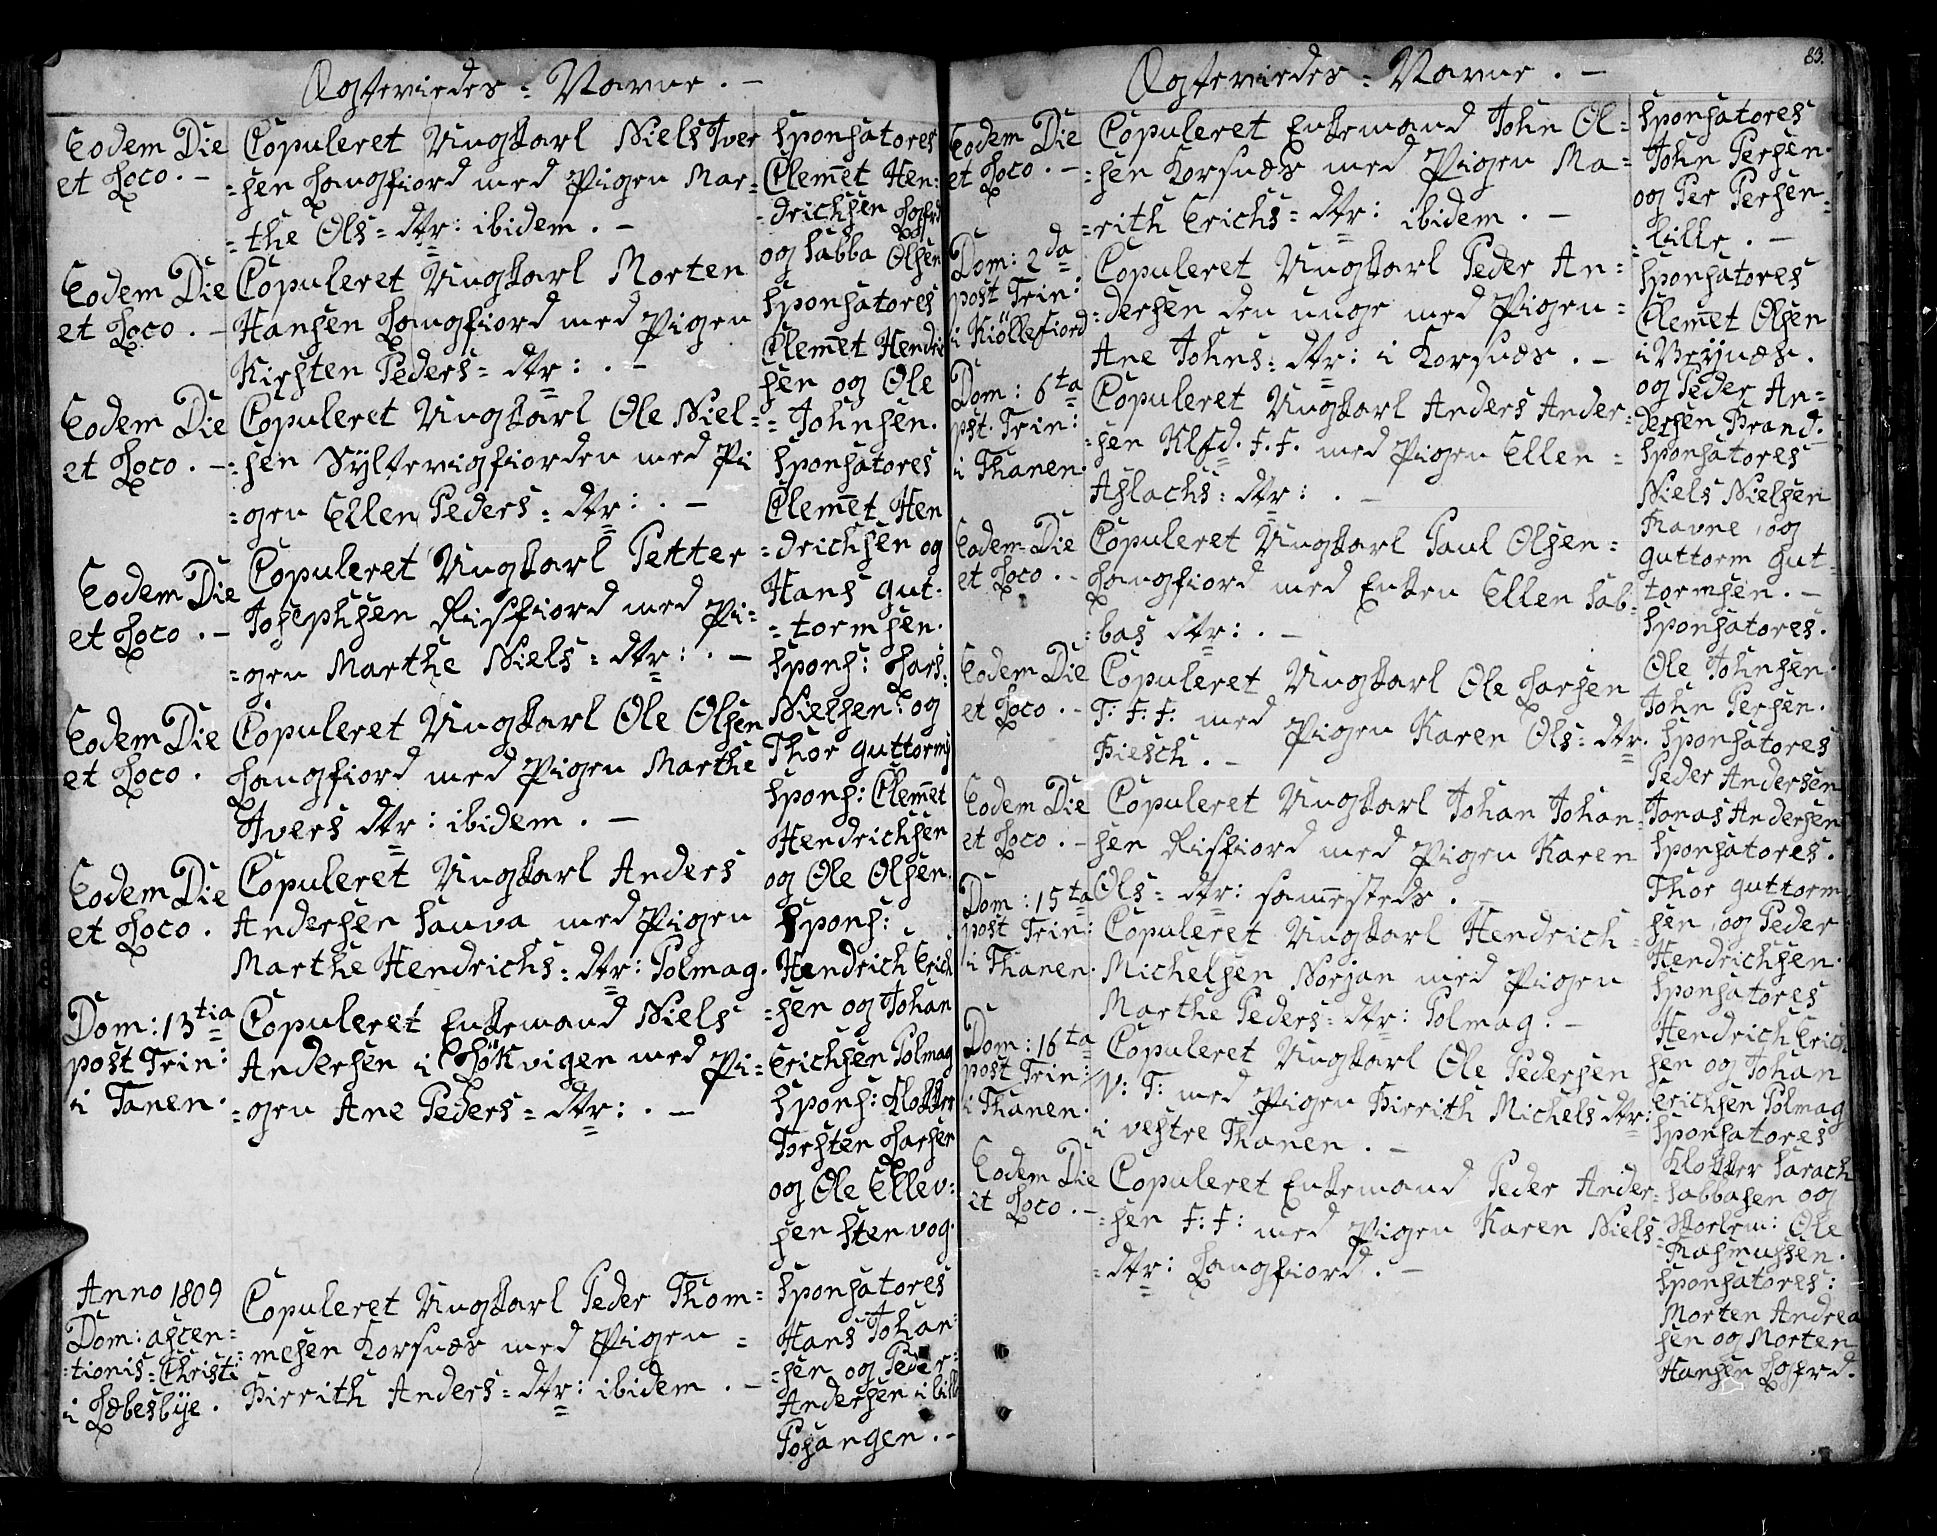 Ægteviedes = Navne . -
Eodem Die
et Loco . -
Copuleret Ungkarl Niels Iver
=sen Langfiord med Pigen Mar=
=the Ols = dtr: ibidem . -
Sponsatores
Clemet Hen=
=drichsen Lgfrd
og Sabba Olsen
Eodem Die
et Loco . -
Copuleret Ungkarl Morten
Hansen Langfiord med Pigen
Kirsten Peders = dtr: . -
Sponsatores
Clemet Hendri
sen og Ole
= Johnsen.
Eodem Die
et Loco . -
Copuleret Ungkarl Ole Niel=
=sen Syltevigfiorden med Pi
=gen Ellen Peders = dtr: . -
Sponsatores
Clemet Hen
=drichsen og
Hans Gut=
=tormsen.
Eodem Die
et Loco . -
Copuleret Ungkarl Petter
Josephsen Risfiord med Pi=
=gen Marthe Niels = dtr: . -
Spons: Lars
Nielsen: og
Thor Guttorms
Eodem Die
et Loco .
Copuleret Ungkarl Ole Olsen
Langfiord med Pigen Marthe
Ivers dtr: ibidem . -
Spons: Clemet
Hendrichsen
og Ole Olsen
Eodem Die
et Loco .
Copuleret Ungkarl Anders
Andersen Sauva med Pigen
Marthe Hendrichs = dtr: Polmag.
Spons:
Hendrich Erich
=sen og Johan
Erichsen Polmag
Dom: 13tia
post Trin:
i Tanen.
Copuleret Enkemand Niels
Andersen i                med Pi=
=gen Ane Peders = dtr: . -
Spons: Klokker
Torsten Larsen
og Ole Ellev:
sen Stenvog.
Anno 1809
Dom: ascen=
=tionis = Christi
i Læbesbye.
Copuleret Ungkarl Peder Thom=
=mesen Korsnæs med Pigen =
Birrith Anders = dtr: ibidem . -
Sponsatores
Hans Johan=
=sen og Peder
Andersen i
Posangen. -
83.
Ægteviedes = Navne . -
Eodem Die
et Loco . -
Copuleret Enkemand John Ol=
=sen Korsnæs med Pigen Ma=
=rith Erichs = dtr: ibidem . -
Sponsatores
John Persen
og Per Persen
=Lille . -
Dom: 2da
post Trin:
i Kiöllefiord
Copuleret Ungkarl Peder An=
=dersen den unge med Pigen =
Ane Johns = dtr: i Korsnæs . -
Sponsatores
Clemet Olsen
i Veynæs.
og Peder An=
dersen Brand.
Dom: 6ta
post. Trin:
i Thanen.
Copuleret Ungkarl Anders Ander=
=sen Klfd. F. F. med Pigen Ellen =
Aslachs = dtr: . -
Sponsatores
Niels Nielsen
Ravne, og
Guttorm Gut=
tormsen. -
Eodem Die
et Loco . -
Copuleret Ungkarl Paul Olsen =
Langfiord med Enken Ellen Sab=
=bas dtr: . -
Sponsatores.
Ole Johnsen.
John Persen.
Eodem Die
et Loco . -
Copuleret Ungkarl Ole Larsen
T: F: F: med Pigen Karen Ols = dtr.
Biesch . -
Sponsatores
Peder Andersen
Jonas Andersen
Eodem Die
et Loco . -
Copuleret Ungkarl Johan Johan=
sen Risfiord med Pigen Karen
Ols = dtr: samesteds .
Sponsatores.
Thor Guttorm
sen, og Peder
Hendrichsen.
Dom: 15ta
post Trin:
i Thanen.
Copuleret Ungkarl Hendrich =
Michelsen Norjan med Pigen
Marthe Peders = dtr: Polmag. -
Sponsatores
Hendrich Erich
sen og Johan
Erichsen Polmag
Dom: 16ta
post Trin:
i Thanen.
Copuleret Ungkarl Ole Pedersen
V: T: med Pigen Birrith Michels dtr:
i vestre Thanen . -
Sponsatores
Klokker Sarach
Sabbasen og
Ole
Rasmussen.
Eodem Die
et Loco . -
Copuleret Enkemand Peder Ander=
=sen F: F: med Pigen Karen Niels
=dtr: Langfiord . -
Sponsatores:
Morten Andrea
sen og Morten
Hansen Lgfrd.